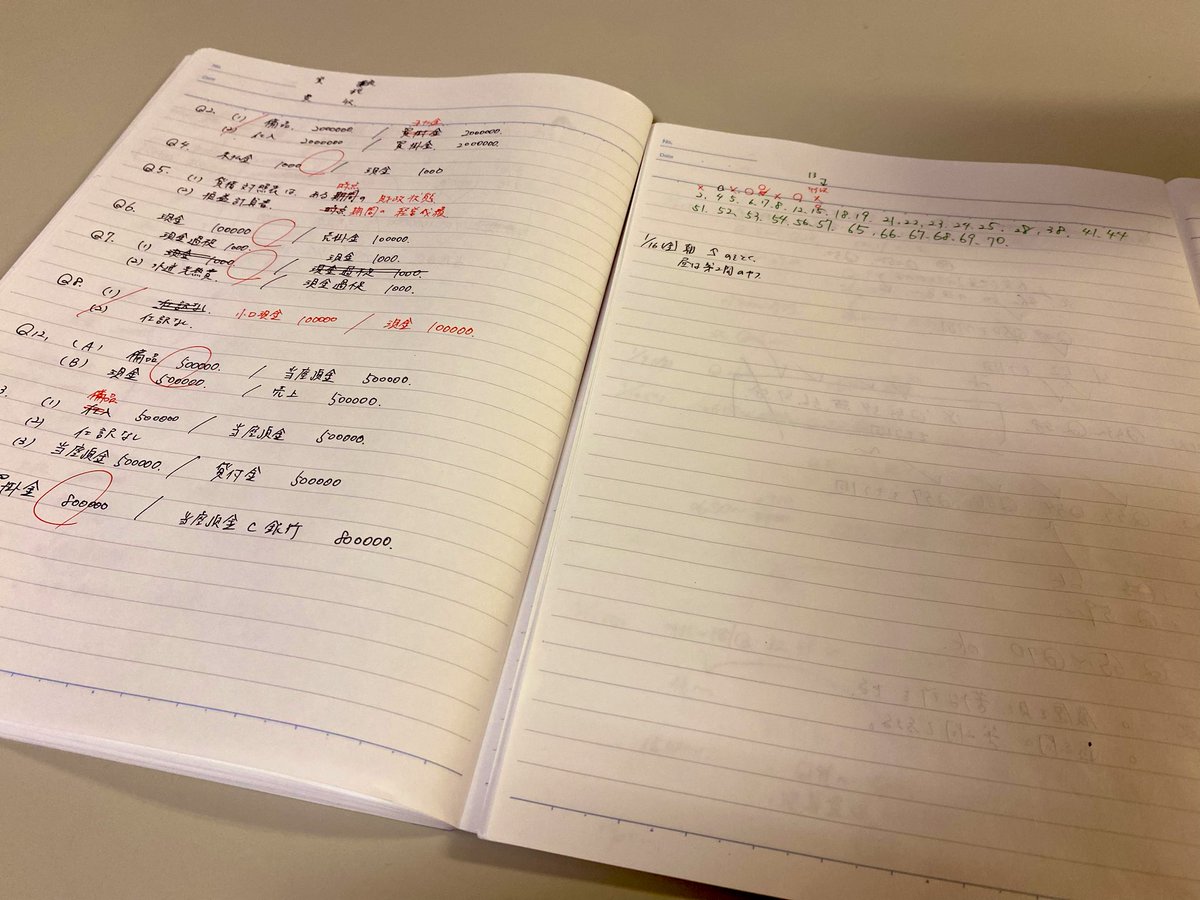 No.
Date
資
費 収
Q2. (1) 備品 2000000. / 買掛金 2000000.
未払金
(2) 仕入 2000000 / 買掛金 2000000.
Q4. 未払金 1000 / 現金 1000
Q5. (1) 貸借対照表は ある 期間の 財政状態
時点
(2) 損益計算書 時点 期間の 経営成績
Q6. 現金 100000 / 売掛金 100000.
Q7. (1) 現金過不足 1000. / 現金 1000.
現金 1000 / 現金過不足 1000.
(2) 水道光熱費 / 現金過不足 1000.
Q8. (1) 仕訳なし 小口現金 100000 / 現金 100000.
(2) 仕訳なし
Q12. (A) 備品 500000. / 当座預金 500000.
(B) 現金 500000. / 売上 500000.
3. (1) 仕入 500000 / 当座預金 500000.
備品
(2) 仕訳なし
(3) 当座預金 500000. / 貸付金 500000
掛金 800000 / 当座預金 C銀行 800000.
No.
Date
13
2. 4. 5. 6. 7. 8. 12. 15. 18. 19. 21. 22. 23. 24. 25. 28. 38. 41. 44
51. 52. 53. 54. 56. 57. 65. 66. 67. 68. 69. 70.
1/16(金) 朝
昼は第2問